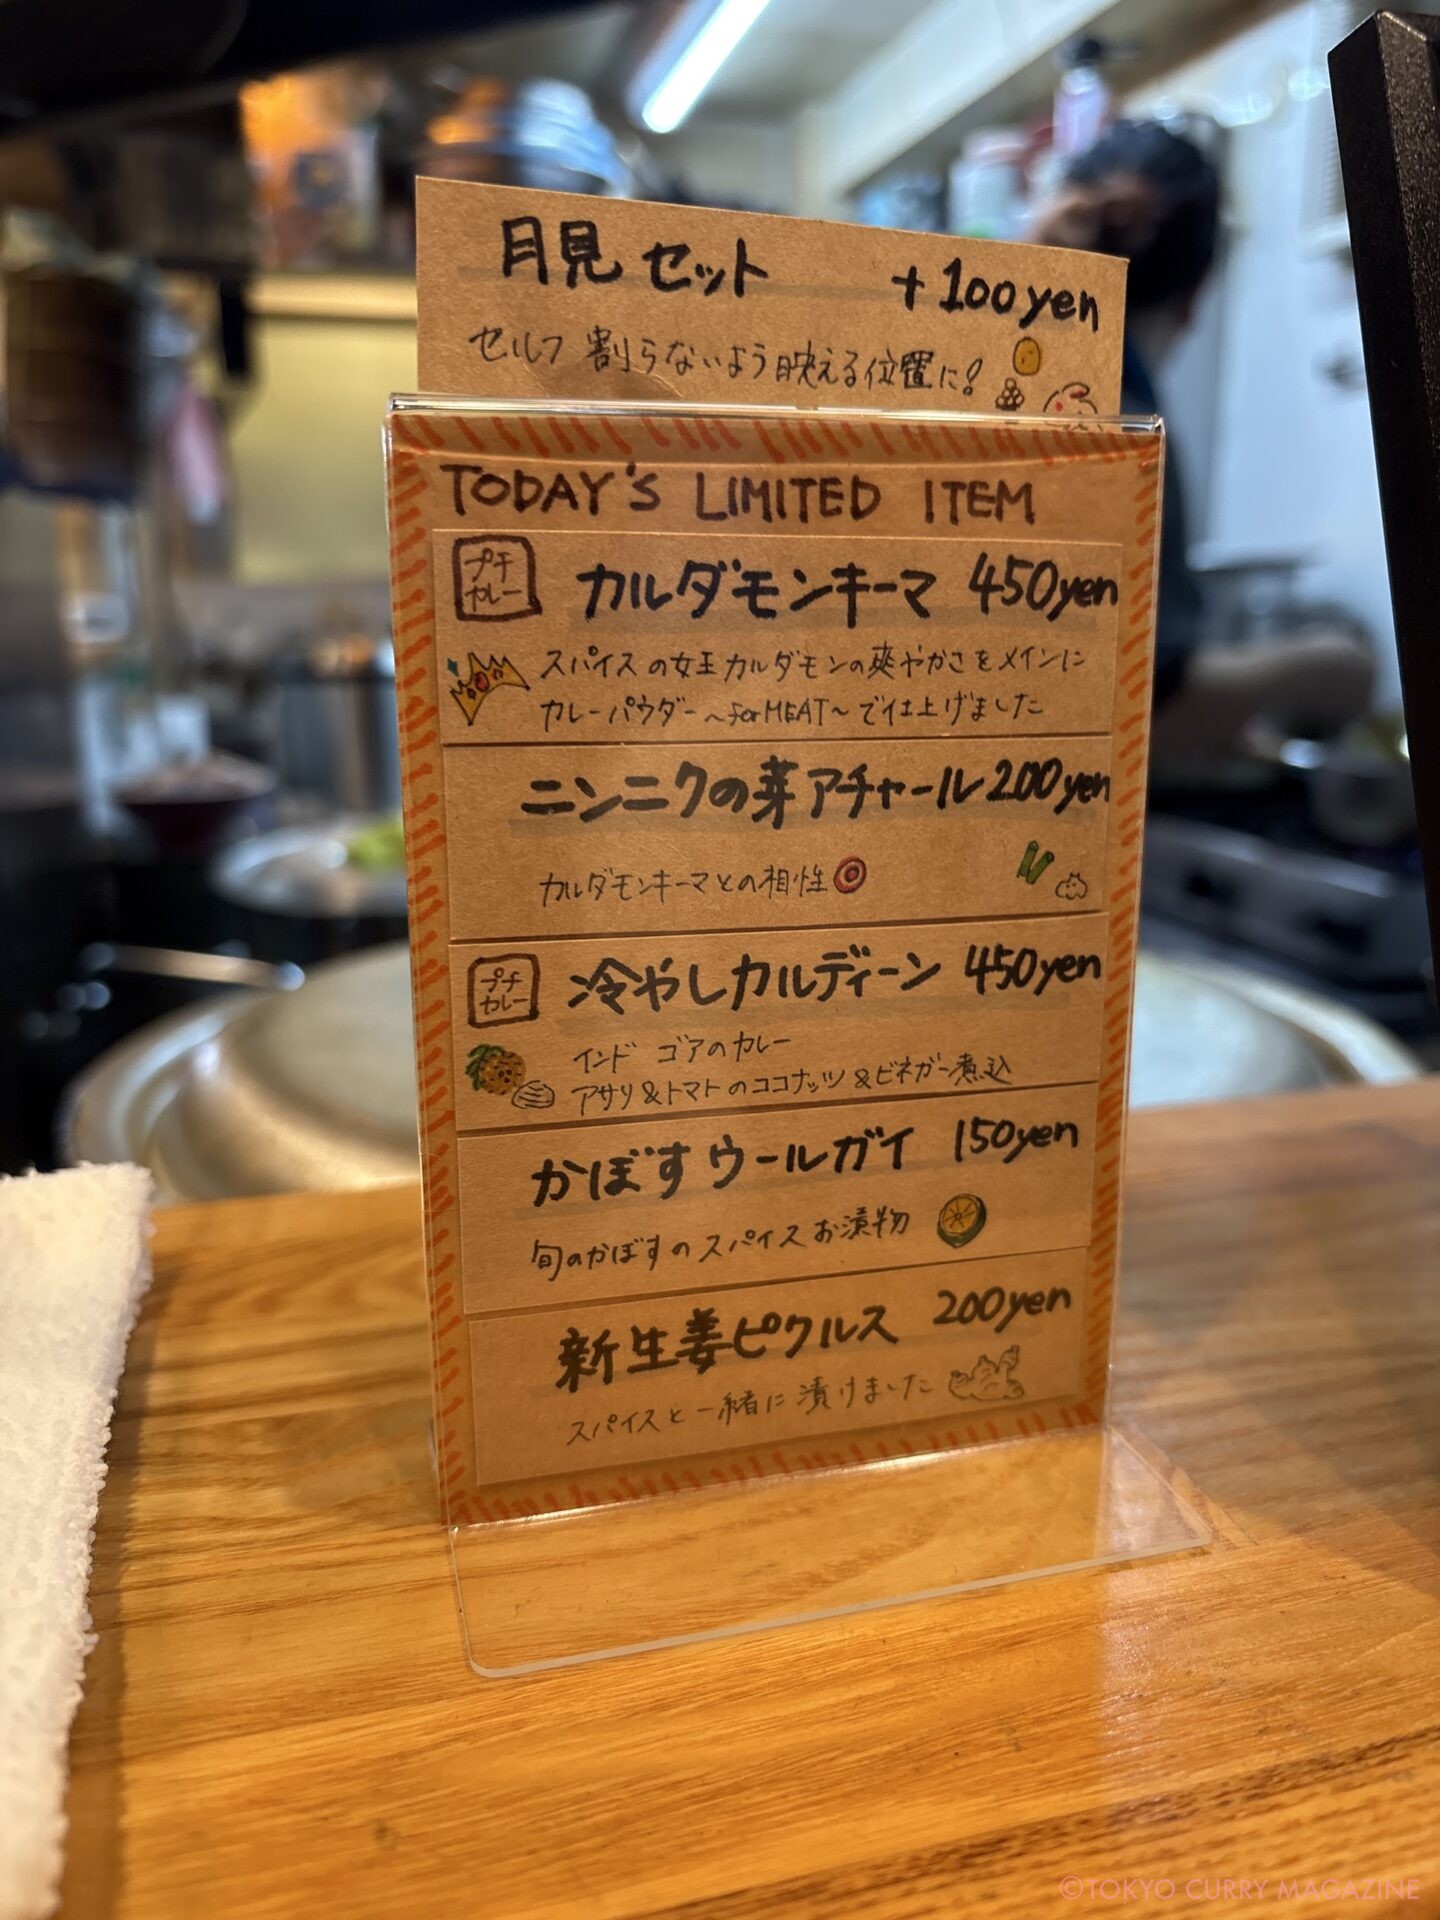 月見セット +100yen
セルフ 割らないよう映える位置に!
TODAY'S LIMITED ITEM
プチ
カレー
カルダモンキーマ 450yen
スパイスの女王カルダモンの爽やかさをメインに
カレーパウダー～for MEAT～で仕上げました
ニンニクの芽アチャール 200yen
カルダモンキーマとの相性◎
プチ
カレー
冷やしカルディーン 450yen
インド ゴアのカレー
アサリ&トマトのココナッツ&ビネガー煮込
かぼすウールガイ 150yen
旬のかぼすのスパイスお漬物
新生姜ピクルス 200yen
スパイスと一緒に漬けました
©TOKYO CURRY MAGAZINE